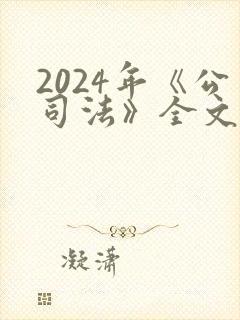 2024年《公
司法》全文
凝潇